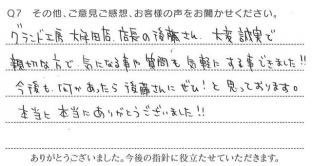 Q7 その他、ご意見ご感想、お客様の声をお聞かせください。
グランド工房 大牟田店、店長の後藤さん、大変誠実で
親切な方で気になる事や質問も気軽にする事できました!!
今後も、何かあったら後藤さんにぜひ!と思っております。
本当に本当にありがとうございました!!
ありがとうございました。今後の指針に役立たせていただきます。